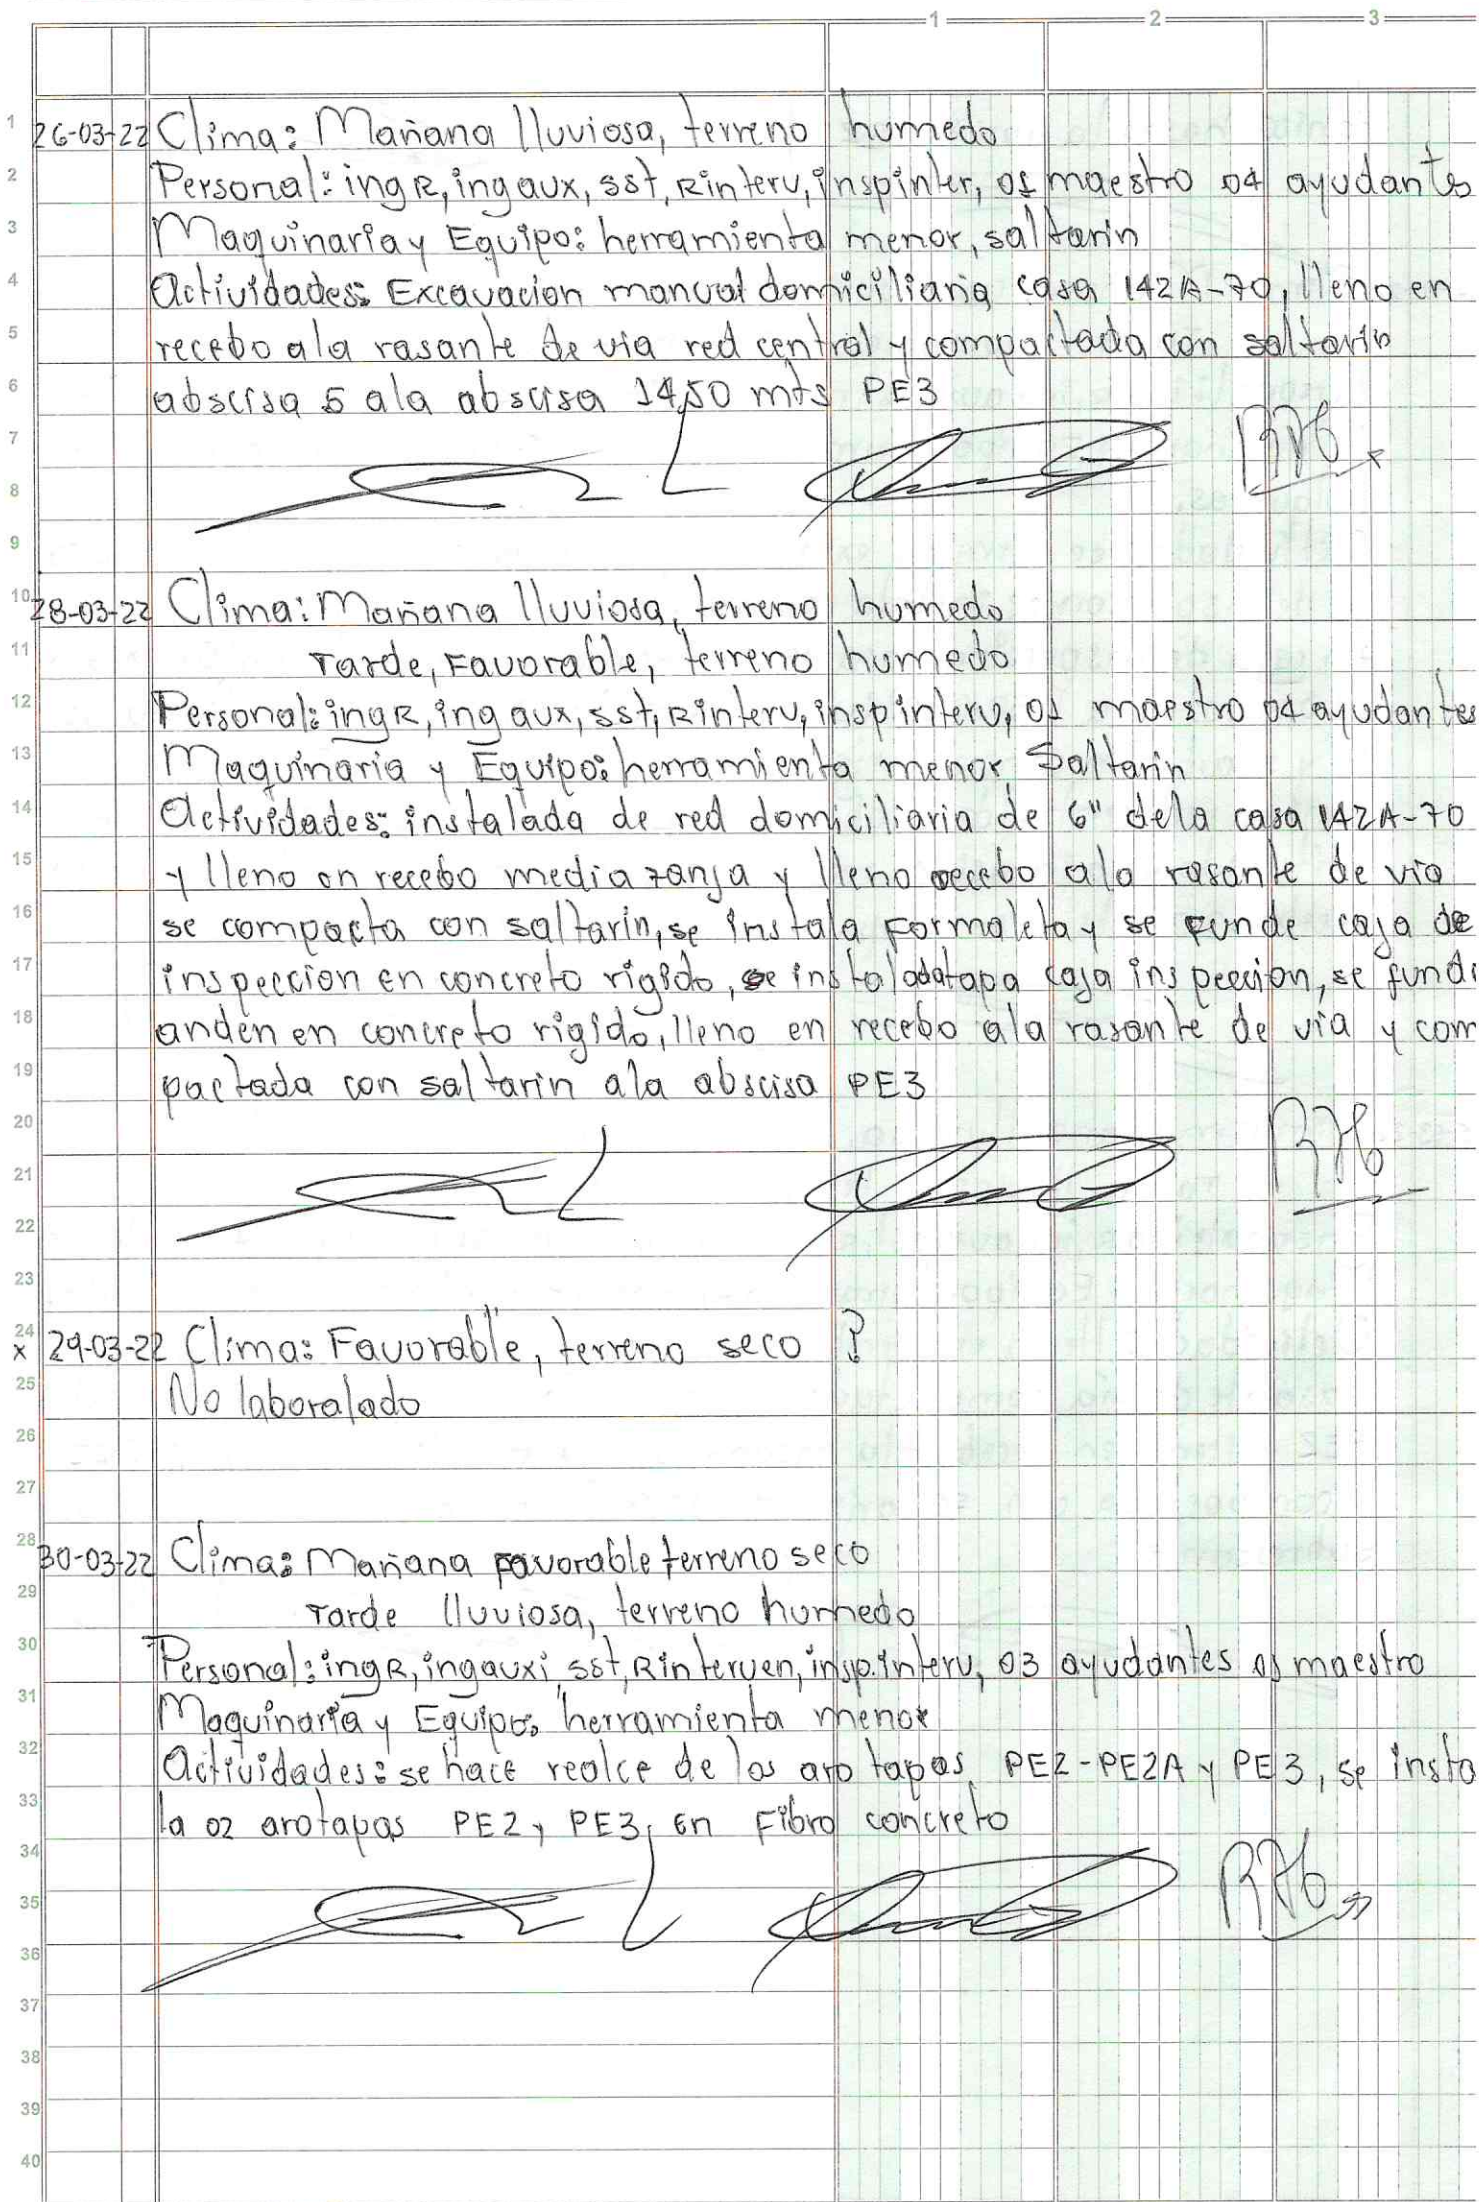 1 2 3
1 26-03-22 Clima: Mañana lluviosa, terreno humedo
2 Personal: ing R, ing aux, sst, Rinterv, inspinter, 01 maestro 04 ayudantes
3 Maquinaria y Equipo: herramienta menor, saltarin
4 Actividades: Excavacion manual domiciliaria casa 142A-70, lleno en
5 recebo ala rasante de via red central y compactada con saltarin
6 abscisa 5 ala abscisa 14,50 mts PE3
7
8
9
10 28-03-22 Clima: Mañana lluviosa, terreno humedo
11 Tarde, Favorable, terreno humedo
12 Personal: ing R, ing aux, sst, Rinterv, insp interv, 01 maestro 04 ayudantes
13 Maquinaria y Equipo: herramienta menor Saltarin
14 Actividades: instalada de red domiciliaria de 6" dela casa 142A-70
15 y lleno en recebo media zanja y lleno recebo ala rasante de via
16 se compacta con saltarin, se instala Formaleta y se funde caja de
17 inspeccion en concreto rigido, se instaladatapa caja inspeccion, se fundi
18 anden en concreto rigido, lleno en recebo ala rasante de via y com
19 pactada con saltarin ala abscisa PE3
20
21
22
23
24 x 29-03-22 Clima: Favorable, terreno seco ?
25 No laboralado
26
27
28 30-03-22 Clima: Mañana favorable terreno seco
29 Tarde lluviosa, terreno humedo
30 Personal: ing R, ing auxi, sst, Rinterven, insp. interv, 03 ayudantes 01 maestro
31 Maquinaria y Equipo: herramienta menor
32 Actividades: se hace realce de los aro tapas PE2-PE2A y PE3, se insta
33 la 02 arotapas PE2 y PE3, en Fibro concreto
34
35
36
37
38
39
40